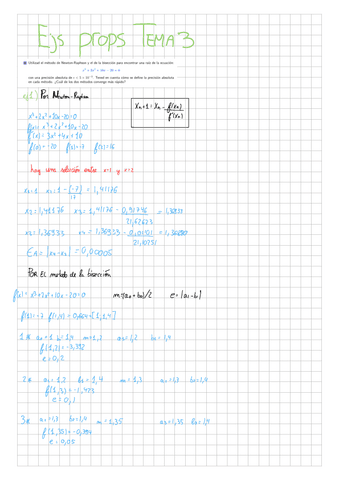 Ejs props TEMA 3
Utilizad el método de Newton-Raphson y el de la bisección para encontrar una raíz de la ecuación
x³ + 2x² + 10x − 20 = 0
con una precisión absoluta de
Tened en cuenta cómo se define la precisión absoluta
en cada método. ¿Cuál de los dos métodos converge más rápido?
ej1) Por Newton-Raphson
Xn+1 = Xn - f(xn)/f'(xn)
x³+2x²+10x-20=0
f(x)= x³+2x²+10x-20
f'(x)= 3x²+4x+10
f(0)=-20 f(1)=-7 f(2)=16
hay una solución entre x=1 y x=2
x1=1 x2= 1-[-7]/17 = 1,41176
x2=1,41176 x3= 1,41176 - 0,91746/21,62623 = 1,36933
x3= 1,36933 x4= 1,36933 -
= 1,36880
EA= |x4-x3| = 0,00005
POR EL metodo de la bisección
f(x)= x³+2x²+10x-20=0 m=(an+bn)/2 e=|a-b|
f(1)=-7 f(1,4)= 0,664→[1,1,4]
1ª a0=1 b=1,4 m=1,2 a1=1,2 b=1,4
f(1,2)=-3,392
e=0,2
2ª a1=1,2 b1=1,4 m=1,3 a2=1,3 b2=1,4
f(1,3)=-1,423
e=0,1
3ª a2=1,3 b2=1,4 m=1,35 a3=1,35 b3=1,4
f(1,35)=-0,394
e=0,05